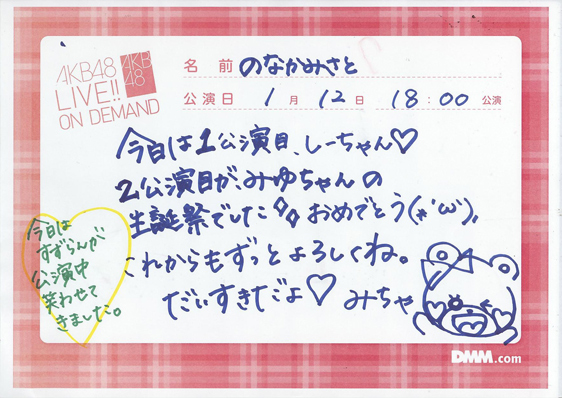 AKB48
LIVE!!
ON DEMAND
AKB
48
名前 のなかみさと
公演日 1月 12日 18:00 公演
今日は1公演目、しーちゃん♡
2公演目が、みゆちゃんの
生誕祭でした おめでとう(*'ω'),
これからもずっとよろしくね。
だいすきだよ♡ みちゃ
今日は
すずらんが
公演中
笑わせて
きました。
DMM.com